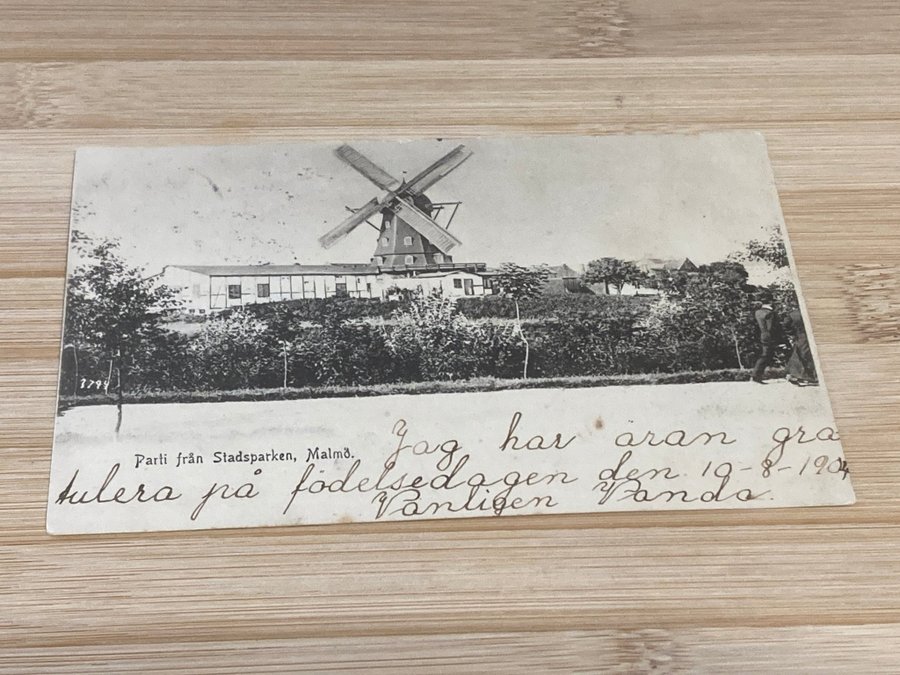 1794
Parti från Stadsparken, Malmö.
Jag har äran gra
tulera på födelsedagen den 19-8-1904
Vänligen Vanda.